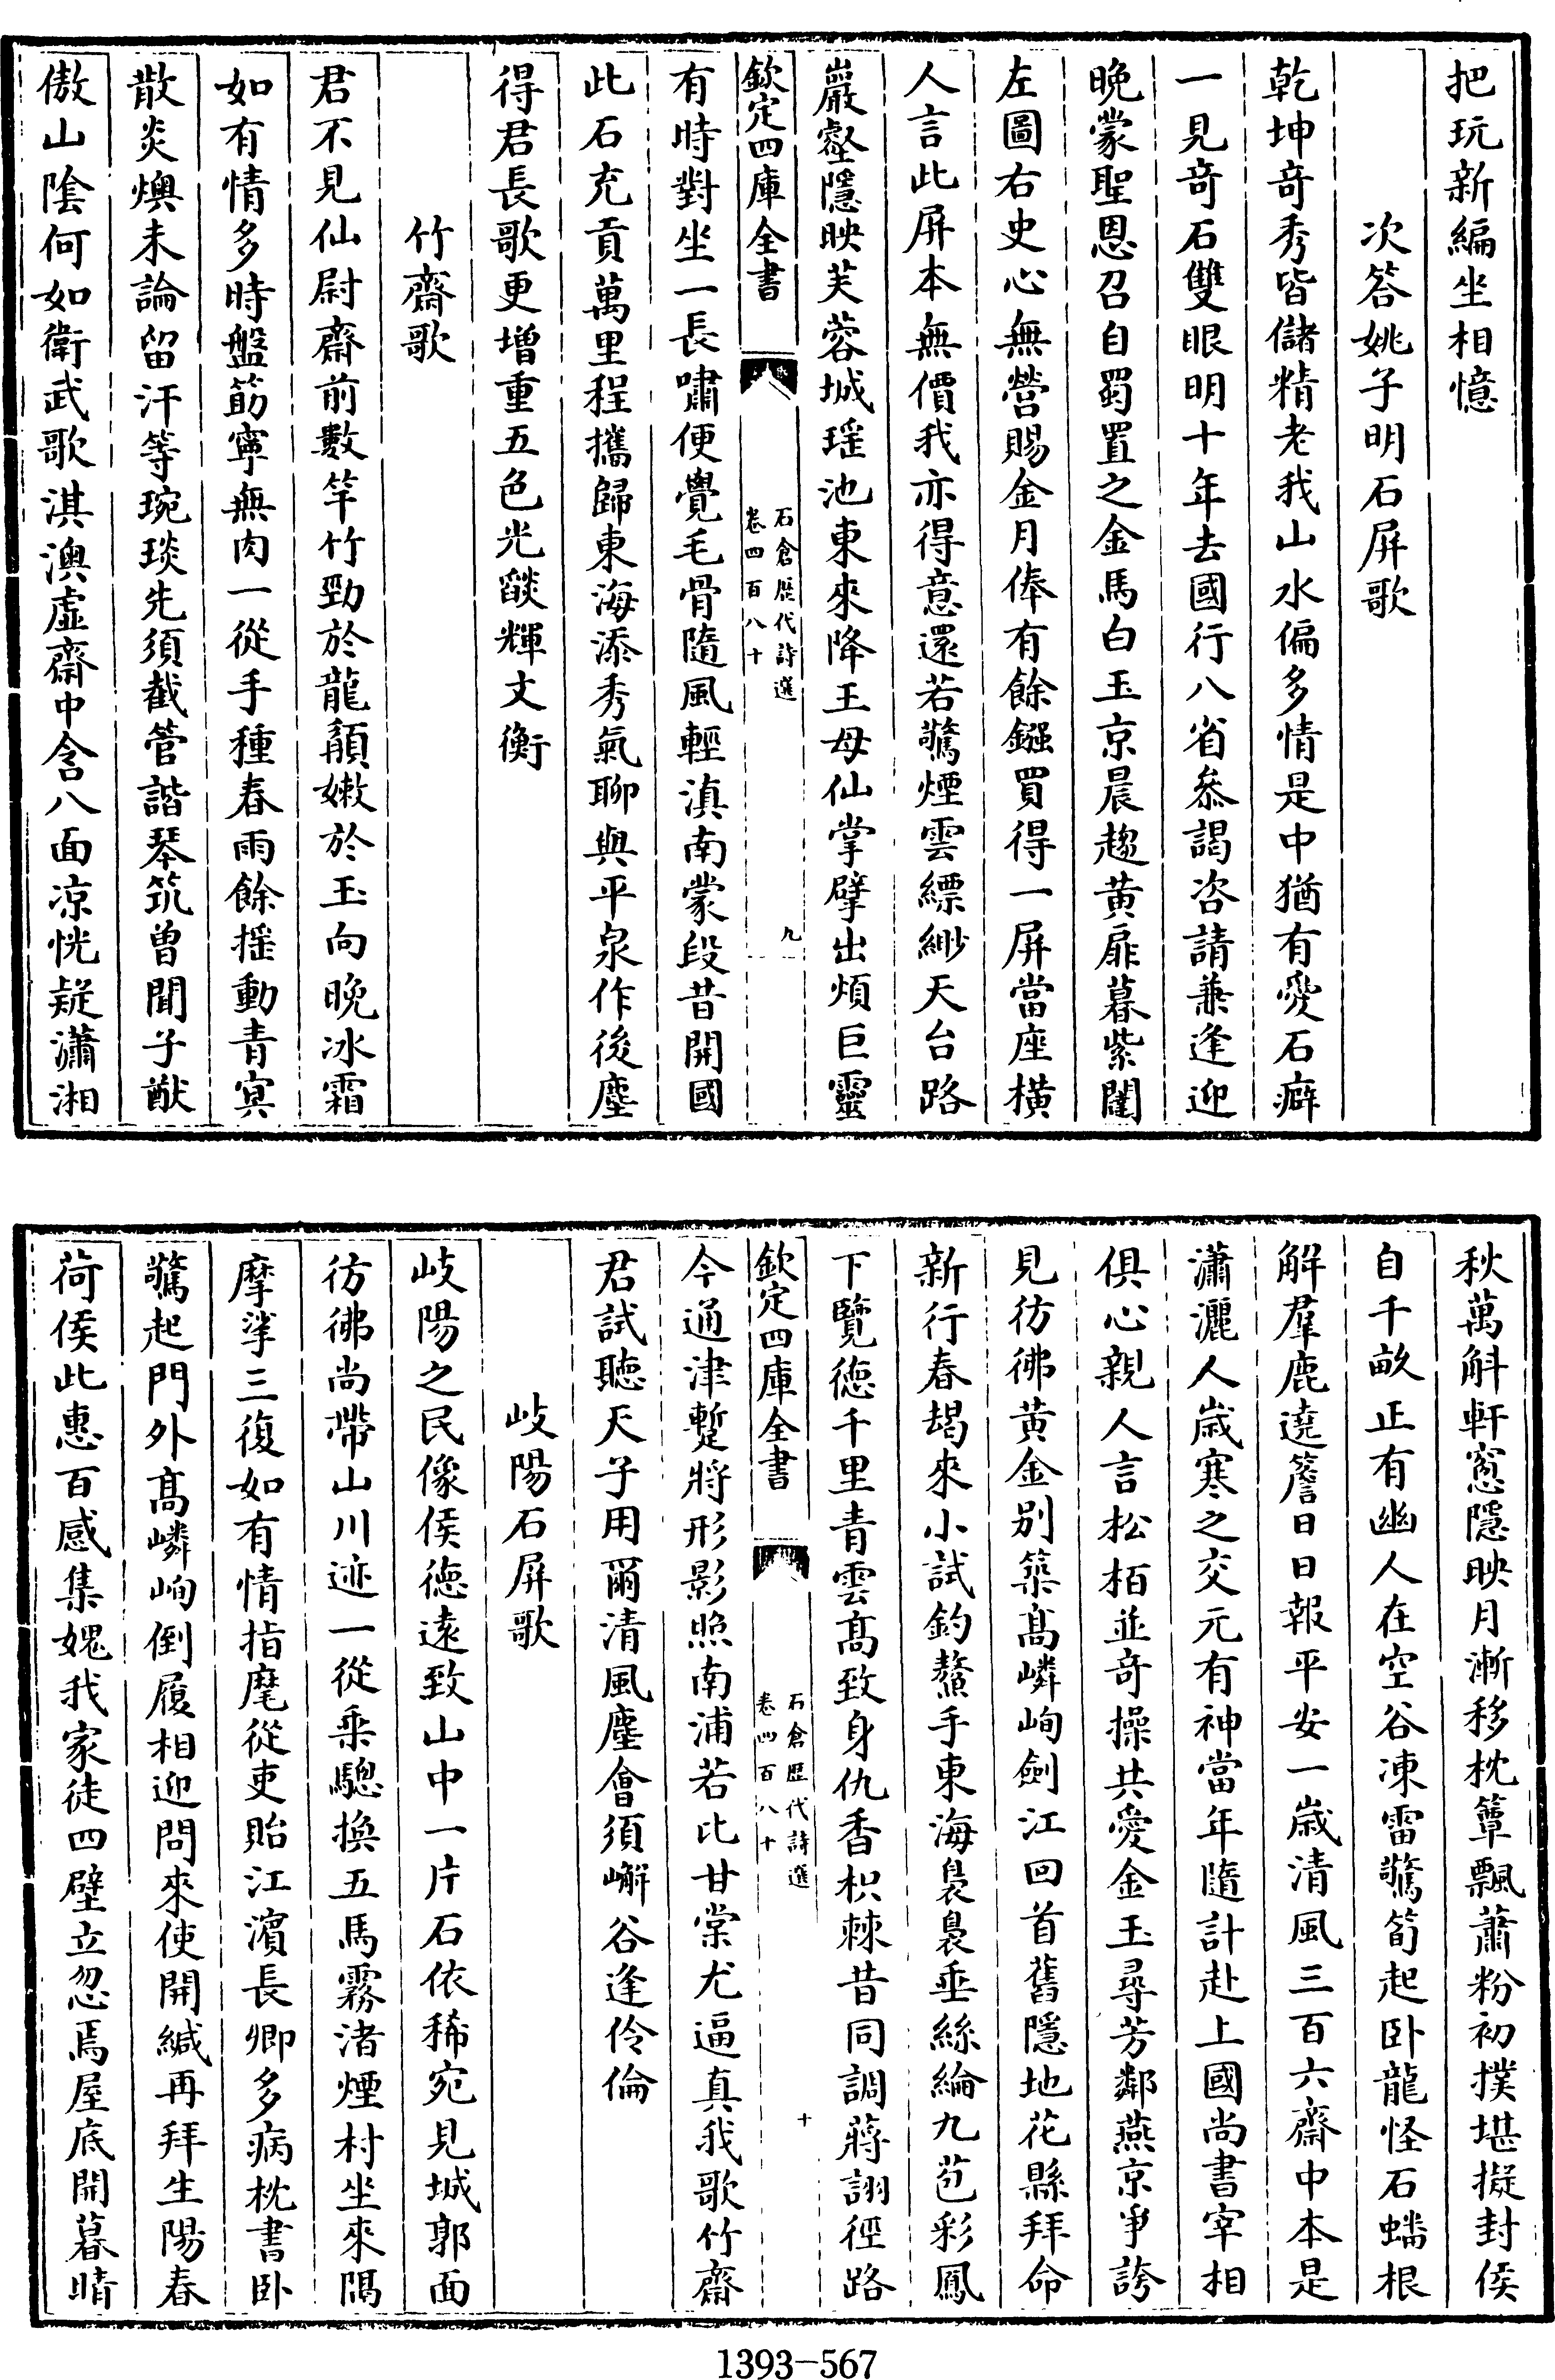 把玩新編坐相憶
次答姚子明石屏歌
乾坤奇秀皆儲精老我山水偏多情是中猶有愛石癖
一見奇石雙眼明十年去國行八省叅謁咨請兼逢迎
晚蒙聖恩召自蜀置之金馬白玉京晨趨黃扉暮紫闥
左圖右史心無營賜金月俸有餘鏹買得一屏當座横
人言此屏本無價我亦得意還若驚煙雲縹緲天台路
巖壑隱映芙蓉城瑶池東來降王母仙掌擘出煩巨靈
欽定四庫全書
石倉歴代詩選
卷四百八十
九
有時對坐一長嘯便覺毛骨隨風輕滇南蒙段昔開國
此石充貢萬里程攜歸東海添秀氣聊與平泉作後塵
得君長歌更增重五色光燄輝文衡
竹齋歌
君不見仙尉齋前數竿竹勁於龍䪼嫩於玉向晚冰霜
如有情多時盤筯寧無肉一從手種春雨餘揺動青㝠
散炎燠未論留汗等琬琰先須截管諧琴筑曽聞子猷
傲山陰何如衛武歌淇澳虛齋中含八面凉恍疑瀟湘
秋萬斛軒窻隱映月漸移枕簟飄蕭粉初撲堪擬封侯
自千畝正有幽人在空谷凍雷驚筍起卧龍怪石蟠根
解羣鹿遶簷日日報平安一歲清風三百六齋中本是
瀟灑人歲寒之交元有神當年隨計赴上國尚書宰相
俱心親人言松栢並奇操共愛金玉尋芳鄰燕京爭誇
見彷彿黄金别築髙嶙峋劍江回首舊隱地花縣拜命
新行春朅來小試釣鰲手東海裊裊垂絲綸九苞彩鳳
下覽徳千里青雲髙致身仇香枳棘昔同調蔣詡徑路
欽定四庫全書
石倉歴代詩選
卷四百八十
十
今通津蹔將形影照南浦若比甘棠尤逼真我歌竹齋
君試聽天子用爾清風塵會須嶰谷逢伶倫
岐陽石屏歌
岐陽之民像侯徳遠致山中一片石依稀宛見城郭面
彷彿尚帶山川迹一從乘驄換五馬霧渚煙村坐來隔
摩挲三復如有情指麾從吏貽江濵長卿多病枕書卧
驚起門外髙嶙峋倒履相迎問來使開緘再拜生陽春
荷侯此惠百感集媿我家徒四壁立忽焉屋底開暮晴
1393-567